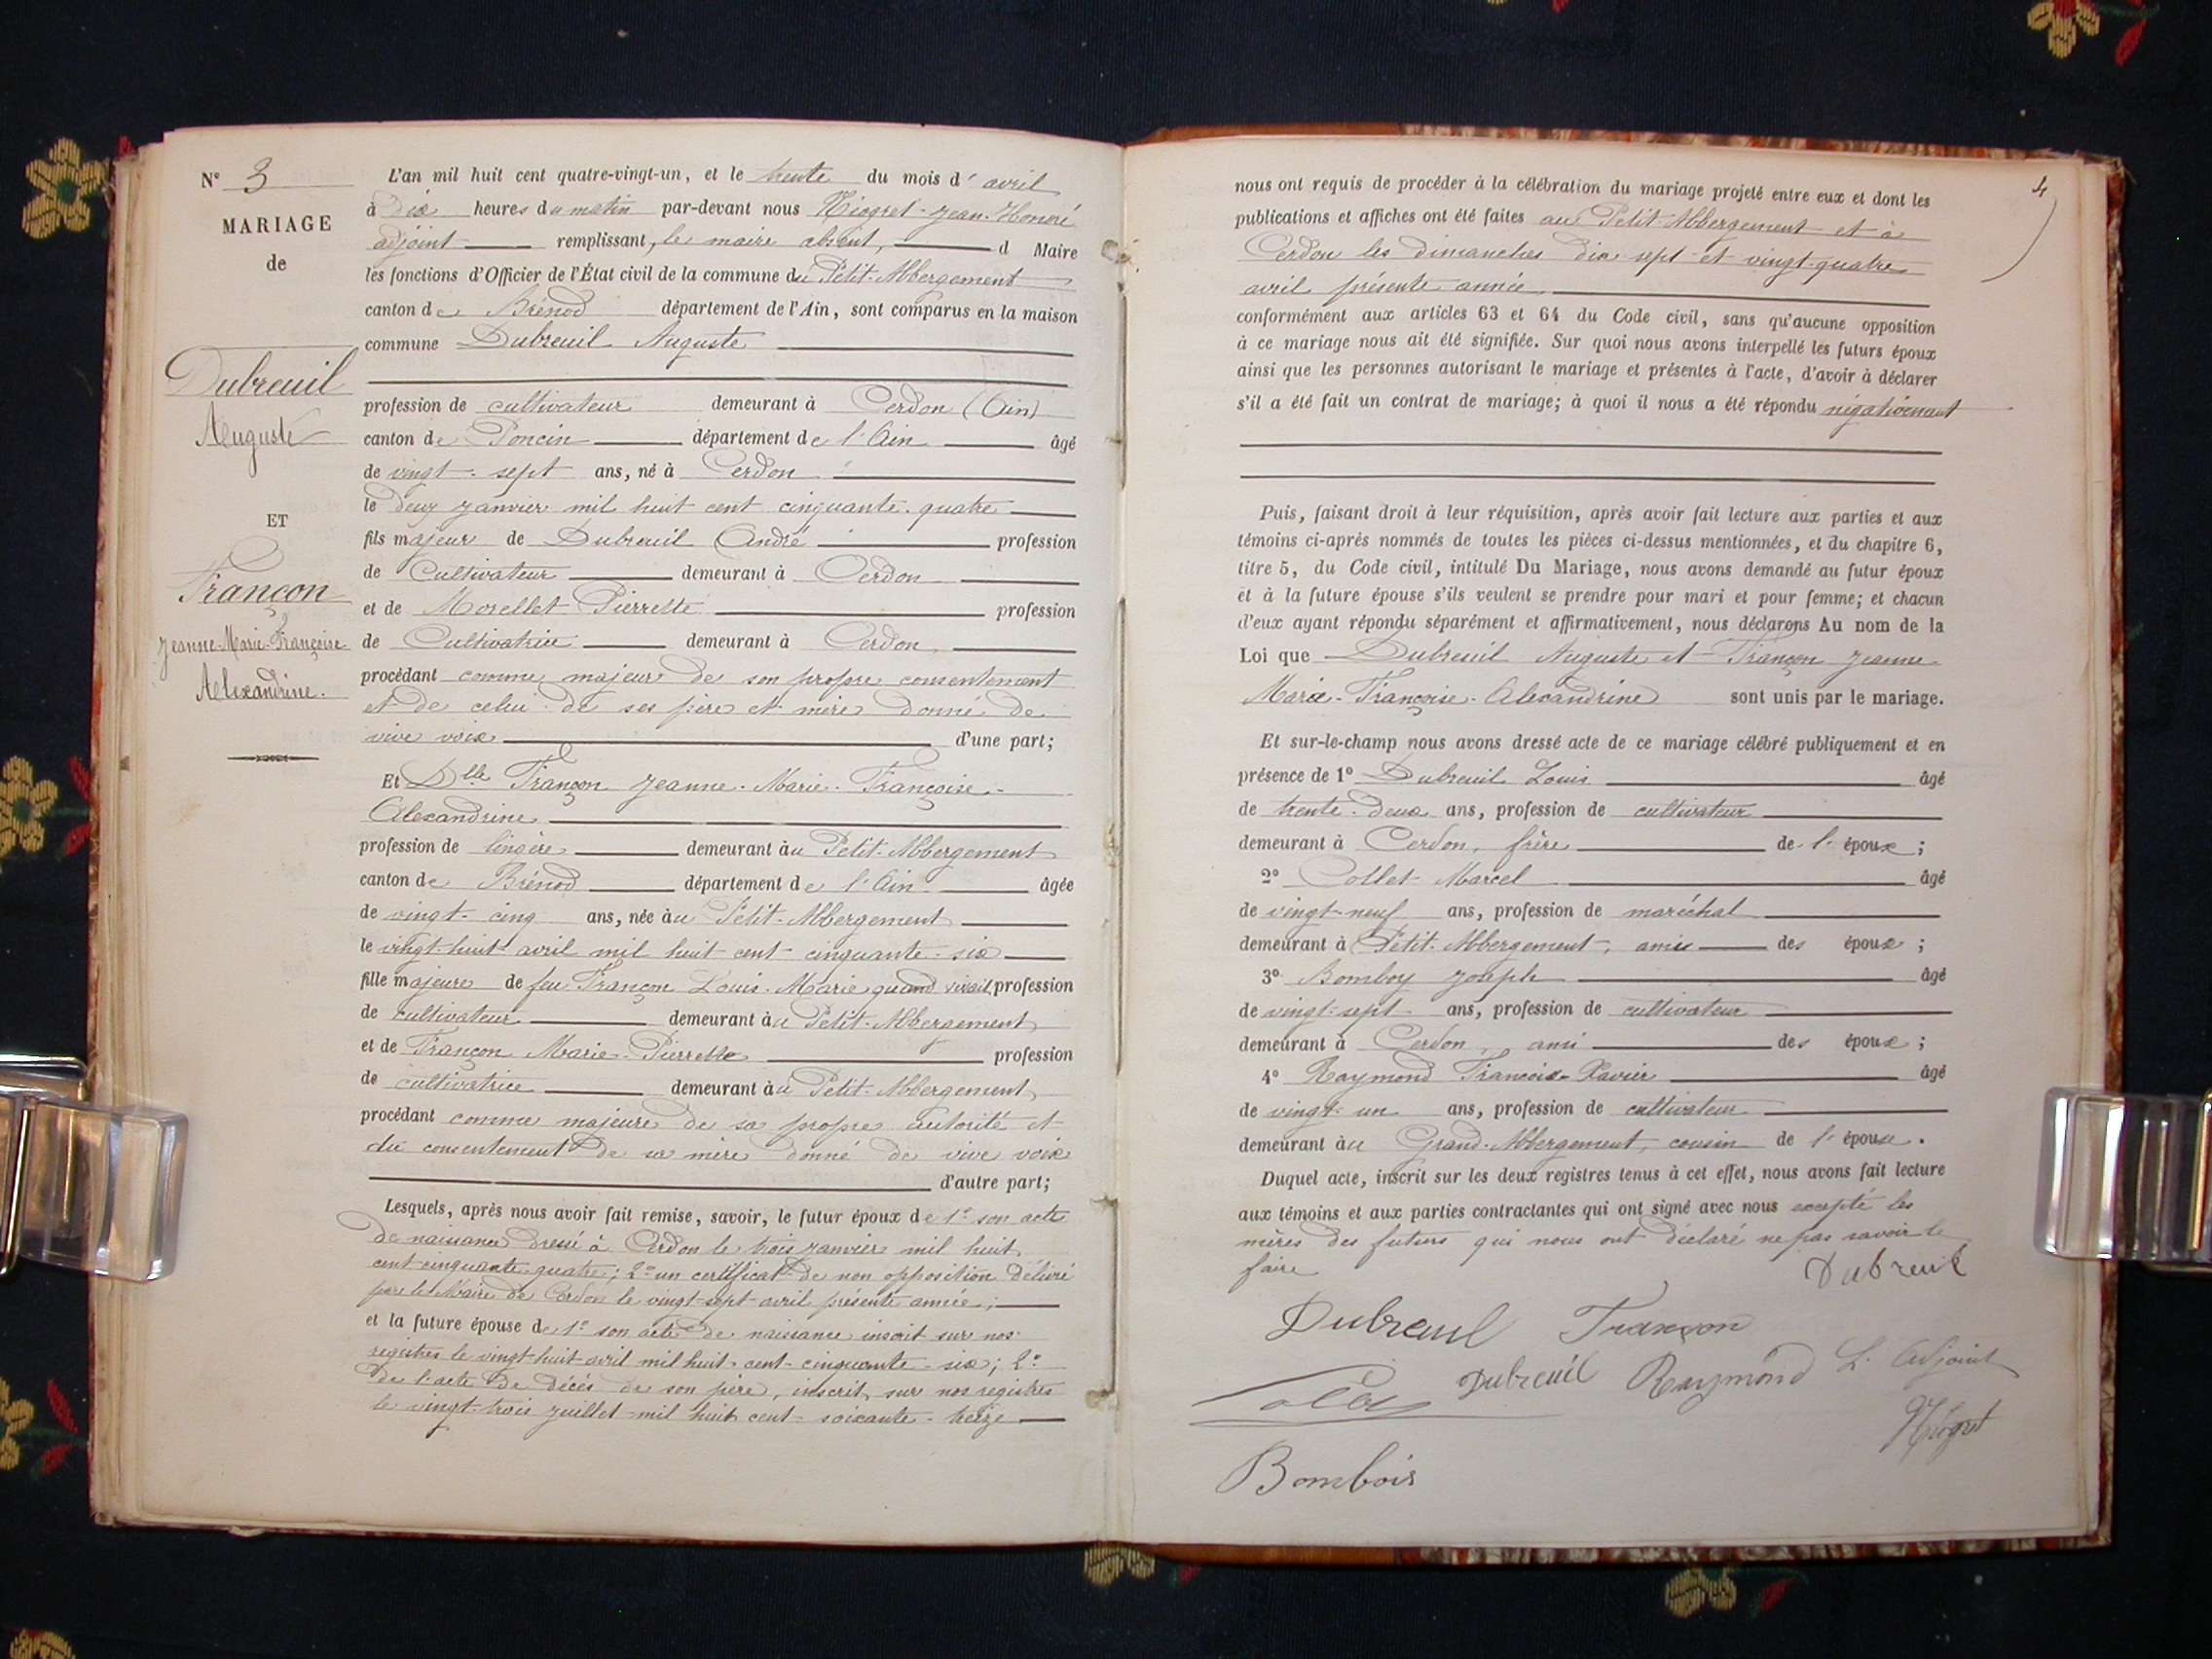 N° 3
MARIAGE
de
Dubreuil
Auguste
ET
Françon
Jeanne-Marie-Françoise-
Alexandrine.
L'an mil huit cent quatre-vingt-un, et le trente du mois d' avril
à dix heures du matin par-devant nous Niogret Jean-Honoré
adjoint remplissant, le maire absent, d Maire
les fonctions d'Officier de l'État civil de la commune du Petit-Abbergement
canton de Brénod département de l'Ain, sont comparus en la maison
commune Dubreuil Auguste
profession de cultivateur demeurant à Cerdon (Ain)
canton de Poncin département de l'Ain âgé
de vingt-sept ans, né à Cerdon
le deux janvier mil huit cent cinquante-quatre
fils majeur de Dubreuil André profession
de Cultivateur demeurant à Cerdon
et de Morellet Pierrette profession
de Cultivatrice demeurant à Cerdon,
procédant comme majeur de son propre consentement
et de celui de ses père et mère donné de
vive voix d'une part;
Et Dlle Françon Jeanne-Marie-Françoise-
Alexandrine
profession de lingère demeurant au Petit-Abbergement
canton de Brénod département de l'Ain âgée
de vingt-cinq ans, née au Petit-Abbergement
le vingt-huit avril mil huit cent cinquante-six
fille majeure de feu Françon Louis-Marie quand vivait, profession
de cultivateur demeurant au Petit-Abbergement
et de Françon Marie-Pierrette profession
de cultivatrice demeurant au Petit-Abbergement,
procédant comme majeure de sa propre autorité et
du consentement de sa mère donné de vive voix
d'autre part;
Lesquels, après nous avoir fait remise, savoir, le futur époux de 1° son acte
de naissance dressé à Cerdon le trois janvier mil huit
cent cinquante quatre; 2° un certificat de non opposition délivré
par le Maire de Cerdon le vingt-sept avril présente année;
et la future épouse de 1° son acte de naissance inscrit sur nos
registres le vingt-huit avril mil huit-cent-cinquante-six; 2°
de l'acte de décès de son père, inscrit sur nos registres
le vingt-trois juillet mil huit cent-soixante-treize
4
nous ont requis de procéder à la célébration du mariage projeté entre eux et dont les
publications et affiches ont été faites au Petit-Abbergement et à
Cerdon les dimanches dix sept et vingt-quatre
avril présente année
conformément aux articles 63 et 64 du Code civil, sans qu'aucune opposition
à ce mariage nous ait été signifiée. Sur quoi nous avons interpellé les futurs époux
ainsi que les personnes autorisant le mariage et présentes à l'acte, d'avoir à déclarer
s'il a été fait un contrat de mariage; à quoi il nous a été répondu négativement
Puis, faisant droit à leur réquisition, après avoir fait lecture aux parties et aux
témoins ci-après nommés de toutes les pièces ci-dessus mentionnées, et du chapitre 6,
titre 5, du Code civil, intitulé Du Mariage, nous avons demandé au futur époux
et à la future épouse s'ils veulent se prendre pour mari et pour femme; et chacun
d'eux ayant répondu séparément et affirmativement, nous déclarons Au nom de la
Loi que Dubreuil Auguste et Françon Jeanne-
Marie-Françoise-Alexandrine sont unis par le mariage.
Et sur-le-champ nous avons dressé acte de ce mariage célébré publiquement et en
présence de 1° Dubreuil Louis âgé
de trente-deux ans, profession de cultivateur
demeurant à Cerdon, frère de l' époux;
2° Collet Marcel âgé
de vingt-neuf ans, profession de maréchal
demeurant à Petit-Abbergement, ami des époux;
3° Bomboy Joseph âgé
de vingt-sept ans, profession de cultivateur
demeurant à Cerdon, ami des époux;
4° Raymond François-Xavier âgé
de vingt-un ans, profession de cultivateur
demeurant au Grand-Abbergement, cousin de l' épouse.
Duquel acte, inscrit sur les deux registres tenus à cet effet, nous avons fait lecture
aux témoins et aux parties contractantes qui ont signé avec nous excepté les
mères des futurs qui nous ont déclaré ne pas savoir le
faire
Dubreuil
Dubreuil Françon
Dubreuil Raymond L. Adjoint
Niogret
Bombois